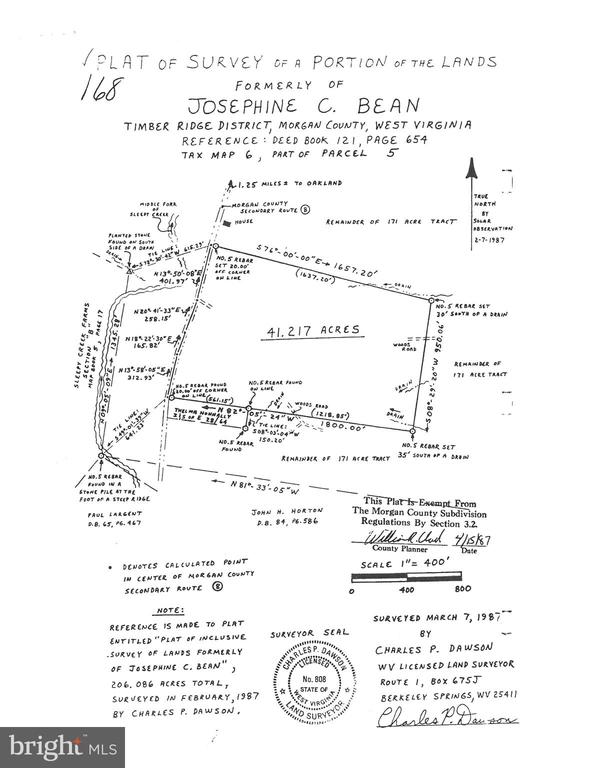 PLAT OF SURVEY OF A PORTION OF THE LANDS
168
FORMERLY OF
JOSEPHINE C. BEAN
TIMBER RIDGE DISTRICT, MORGAN COUNTY, WEST VIRGINIA
REFERENCE: DEED BOOK 121, PAGE 654
TAX MAP 6, PART OF PARCEL 5
1.25 MILES ± TO OAKLAND
MORGAN COUNTY
SECONDARY ROUTE 8
HOUSE
MIDDLE FORK
OF
SLEEPY CREEK
TRUE
NORTH
BY
SOLAR
OBSERVATION
2-7-1987
REMAINDER OF 171 ACRE TRACT
PLANTED STONE
FOUND ON SOUTH
SIDE OF A DRAIN
DRAIN
TIE LINE:
615.23'
NO. 5 REBAR
SET 20.00'
OFF CORNER
ON LINE
S 76°-00'-00"E → 1657.20'
(1637.20')
DRAIN
N13°-50'-08"E
401.97'
N20°-41'-33"E
258.15'
N18°-22'-30"E
165.82'
N13°-58'-05"E
312.93'
NO. 5 REBAR SET
30' SOUTH OF A DRAIN
41.217 ACRES
WOODS
ROAD
S 08°-29'-20"W 950.06'
REMAINDER OF
171 ACRE TRACT
SLEEPY CREEK FARMS
SECTION "B"
MAP BOOK 5, PAGE 17
N 09°-05'-09"E 1345.28'
NO. 5 REBAR FOUND
20.00' OFF CORNER
ON LINE
(561.15')
NO. 5 REBAR FOUND
ON LINE
DRAIN
WOODS ROAD
(1218.85')
DRAIN
N 82°-05'-24"W
1800.00'
THELMA NUNNALLY
215 OF E 28/64
TIE LINE:
S08°-03'-04"W
150.20'
NO. 5 REBAR
FOUND
TIE LINE:
641.53'
NO. 5 REBAR SET
35' SOUTH OF A DRAIN
REMAINDER OF 171 ACRE TRACT
NO. 5 REBAR
FOUND IN A
STONE PILE AT THE
FOOT OF A STEEP RIDGE
N 81°-33'-05"W
PAUL LARGENT
D.B. 65, PG. 467
JOHN H. HORTON
D.B. 84, PG. 586
This Plat Is Exempt From
The Morgan County Subdivision
Regulations By Section 3.2.
4/15/87
County Planner Date
SCALE 1" = 400'
0 400 800
• DENOTES CALCULATED POINT
IN CENTER OF MORGAN COUNTY
SECONDARY ROUTE 8
NOTE:
REFERENCE IS MADE TO PLAT
ENTITLED "PLAT OF INCLUSIVE
SURVEY OF LANDS FORMERLY
OF JOSEPHINE C. BEAN",
206.086 ACRES TOTAL,
SURVEYED IN FEBRUARY, 1987
BY CHARLES P. DAWSON.
SURVEYOR SEAL
CHARLES P. DAWSON
LICENSED
No. 808
STATE OF
WEST VIRGINIA
LAND SURVEYOR
SURVEYED MARCH 7, 1987
BY
CHARLES P. DAWSON
WV LICENSED LAND SURVEYOR
ROUTE 1, BOX 675J
BERKELEY SPRINGS, WV 25411
Charles P. Dawson
bright MLS